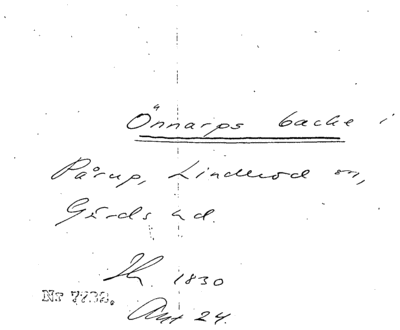 Önnarps backe i
Pårup, Linderöd sn,
Gärds hd.
1830
Nr 7738.
24.